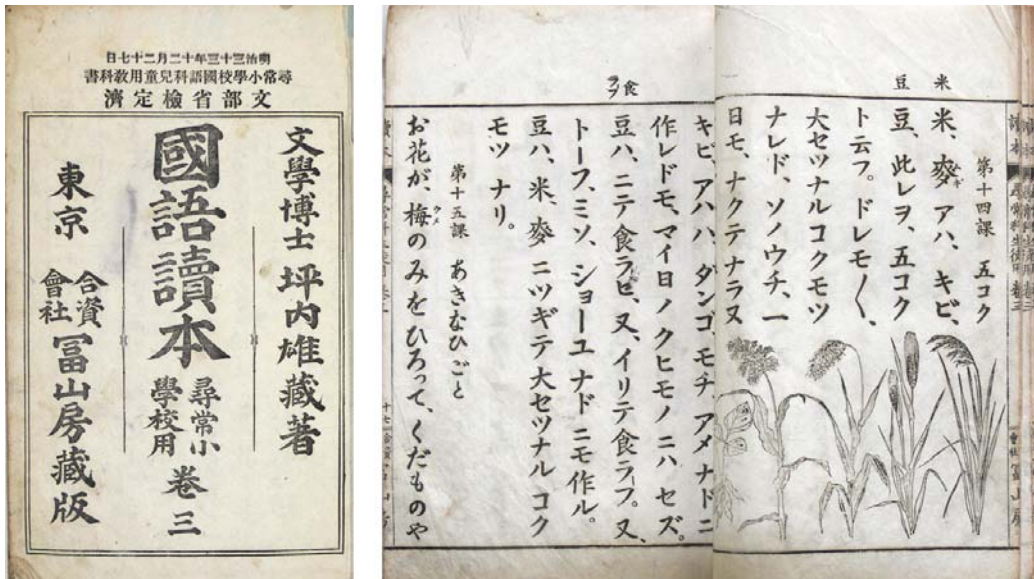 明治三十三年十二月二十七日
尋常小學校國語科兒童用教科書
文部省檢定濟
文學博士 坪内雄藏著
國語讀本 尋常小學校用 卷三
東京 合資會社 冨山房藏版
米 豆
第十四課 五コク
米、麥、アハ、キビ、
豆、此レヲ、五コク
ト云フ。ドレモ〱、
大セツナルコクモツ
ナレド、ソノウチ、一
日モ、ナクテナラヌ
食ラフ
キビ、アハハ、ダンゴ、モチ、アメナドニ
作レドモ、マイ日ノクヒモノニハ セズ。
豆ハ、ニテ食ラヒ、又、イリテ食ラフ。又、
トーフ、ミソ、ショーユ ナドニモ作ル。
豆ハ、米、麥 ニツギテ大セツナル コク
モツ ナリ。
第十五課 あきなひごと
お花が、梅のみをひろって、くだものや